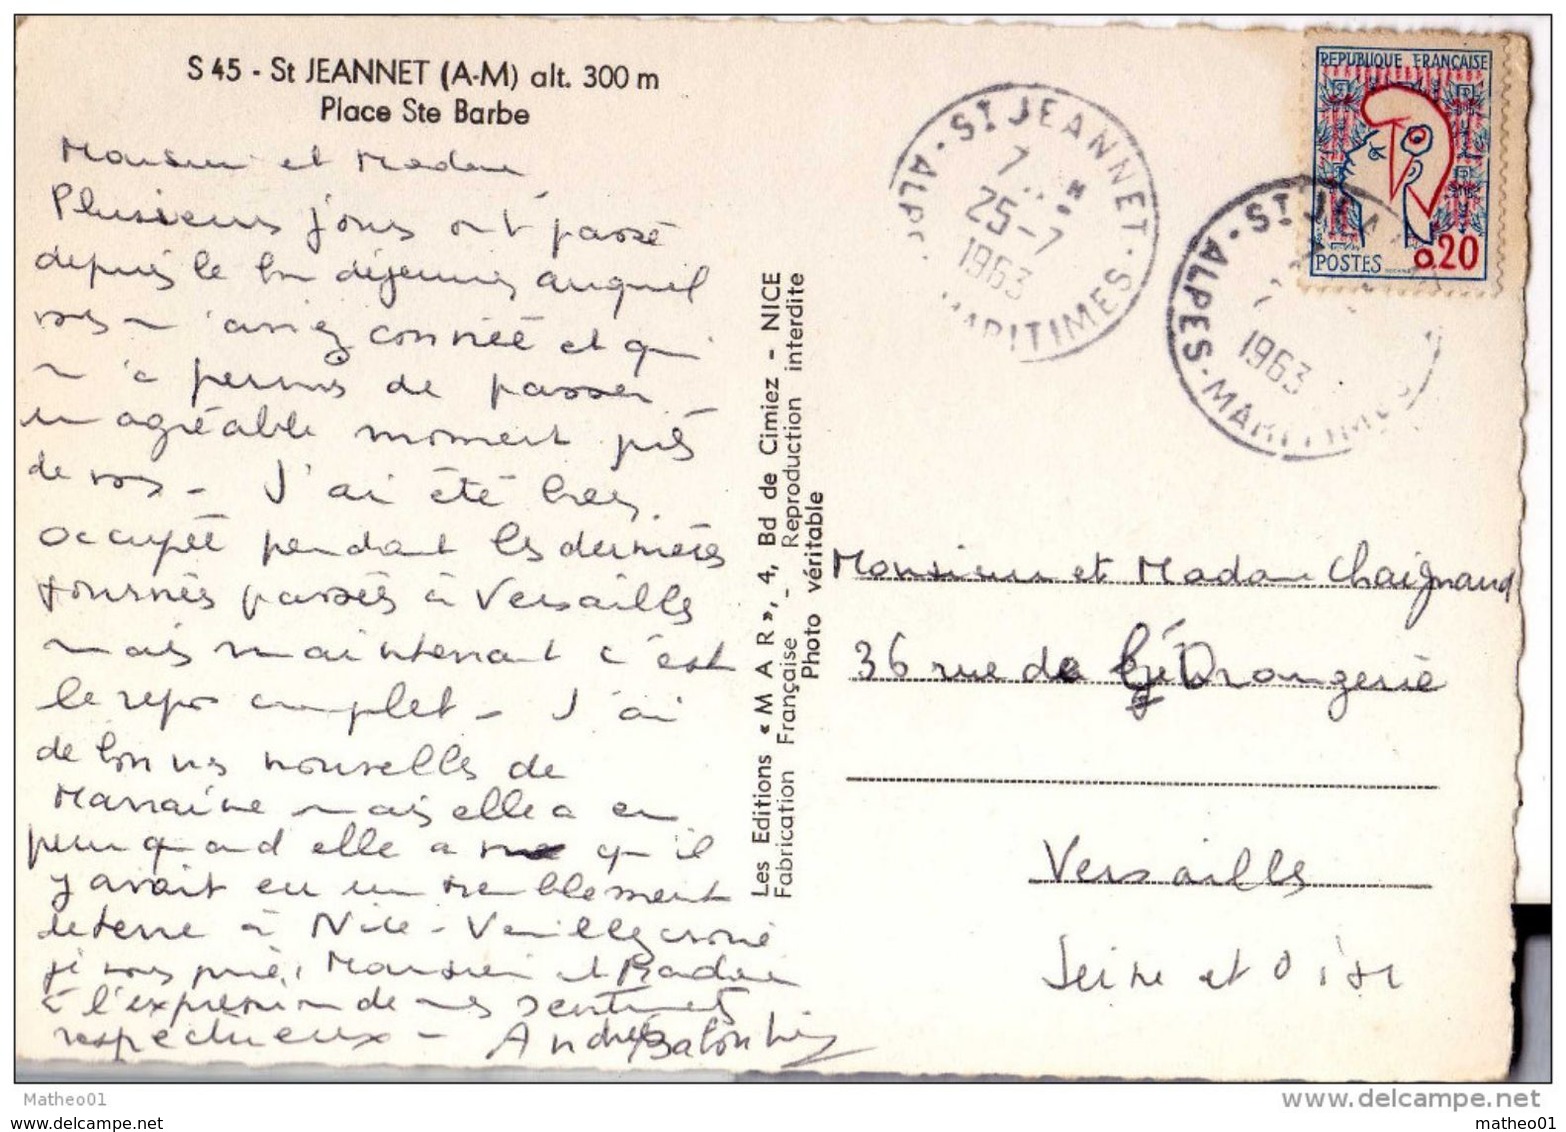 S 45 - St JEANNET (A-M) alt. 300 m
Place Ste Barbe
Monsieur et Madame
Plusieurs jours ont passé
depuis le bon déjeuner auquel
vous m'aviez conviée et qui
m'a permis de passer
un agréable moment près
de vous - J'ai été très
occupée pendant les dernières
journées passées à Versailles
mais maintenant c'est
le repos complet - J'ai
de bonnes nouvelles de
Marraine mais elle a eu
peur quand elle a su qu'il
y avait eu un tremblement
de terre à Nice - Veuillez croire
je vous prie, Monsieur et Madame
à l'expression de mes sentiments
respectueux -
Les Editions « M A R », 4, Bd de Cimiez - NICE
Fabrication Française - Reproduction interdite
Photo véritable
ST JEANNET
ALPES MARITIMES
25-7
1963
ST JEANNET
ALPES-MARITIMES
1963
REPUBLIQUE FRANÇAISE
POSTES
0.20
Monsieur et Madame Chaignaud
36 rue de l'Orangerie
Versailles
Seine et Oise
Matheo01
www.delcampe.net
matheo01